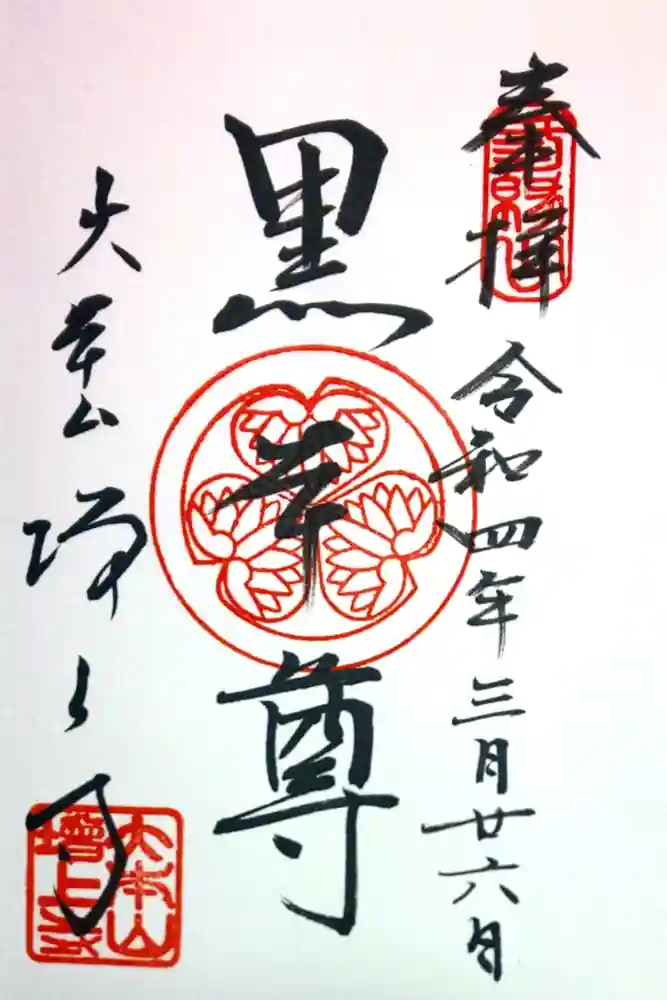 奉拝 令和四年三月廿六日
黒本尊
大本山 増上寺
大本山
增上寺